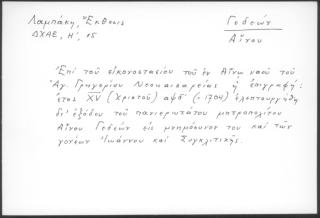 Λαμπάκη, Ἔκθεσις
ΔΧΑΕ, Η', 15
Γεδεὼν
Αἴνου
Ἐπὶ τοῦ εἰκονοστασίου τοῦ ἐν Αἴνῳ ναοῦ τοῦ
Ἁγ. Γρηγορίου Νεοκαισαρείας ἡ ἐπιγραφή:
ἔτος XV (Χριστοῦ) αψδ' (= 1704)
δι' ἐξόδου τοῦ πανιερωτάτου μητροπολίτου
Αἴνου Γεδεὼν εἰς μνημόσυνον του καὶ τῶν
γονέων Ἰωάννου καὶ Συγκλιτικῆς.